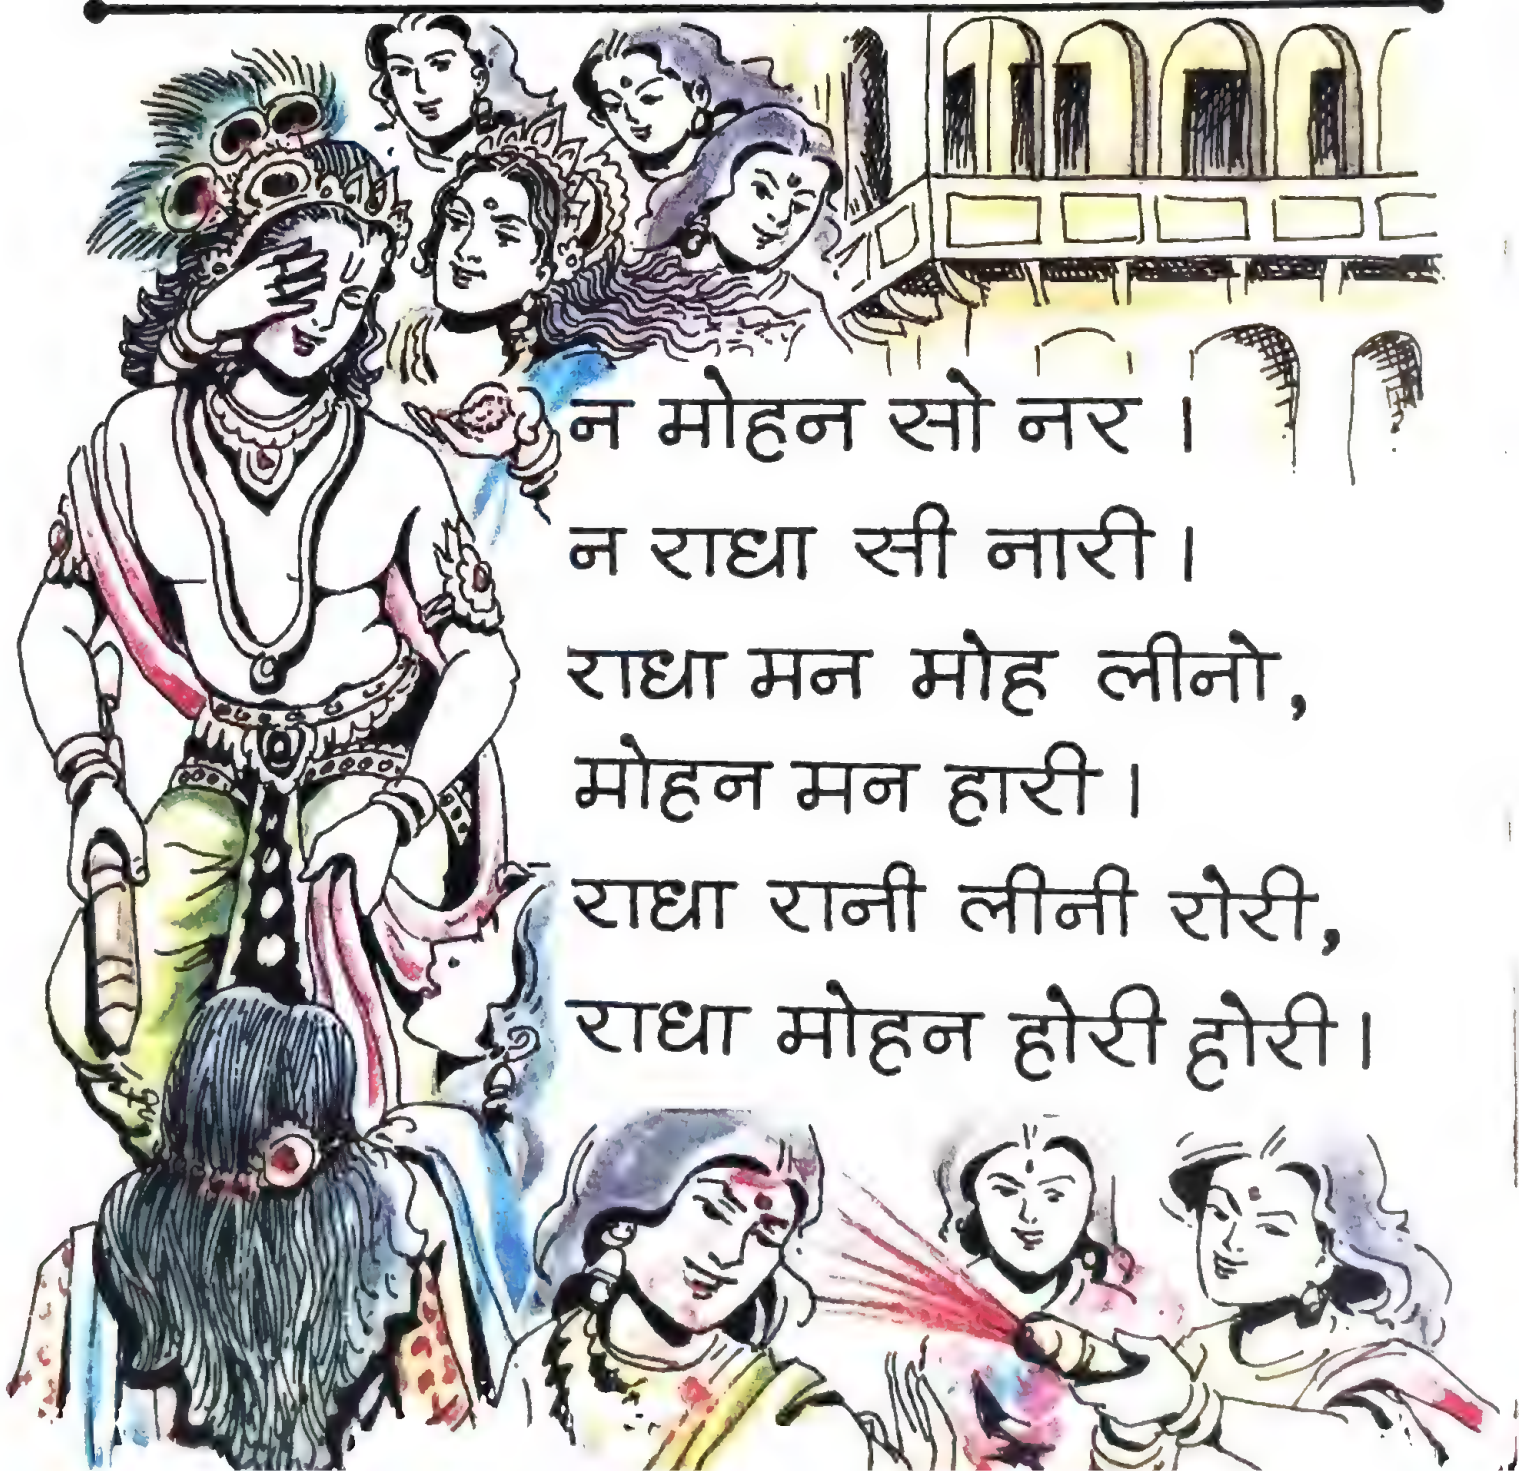 न मोहन सो नर ।
न राधा सी नारी ।
राधा मन मोह लीनो,
मोहन मन हारी ।
राधा रानी लीनी रोरी,
राधा मोहन होरी होरी ।